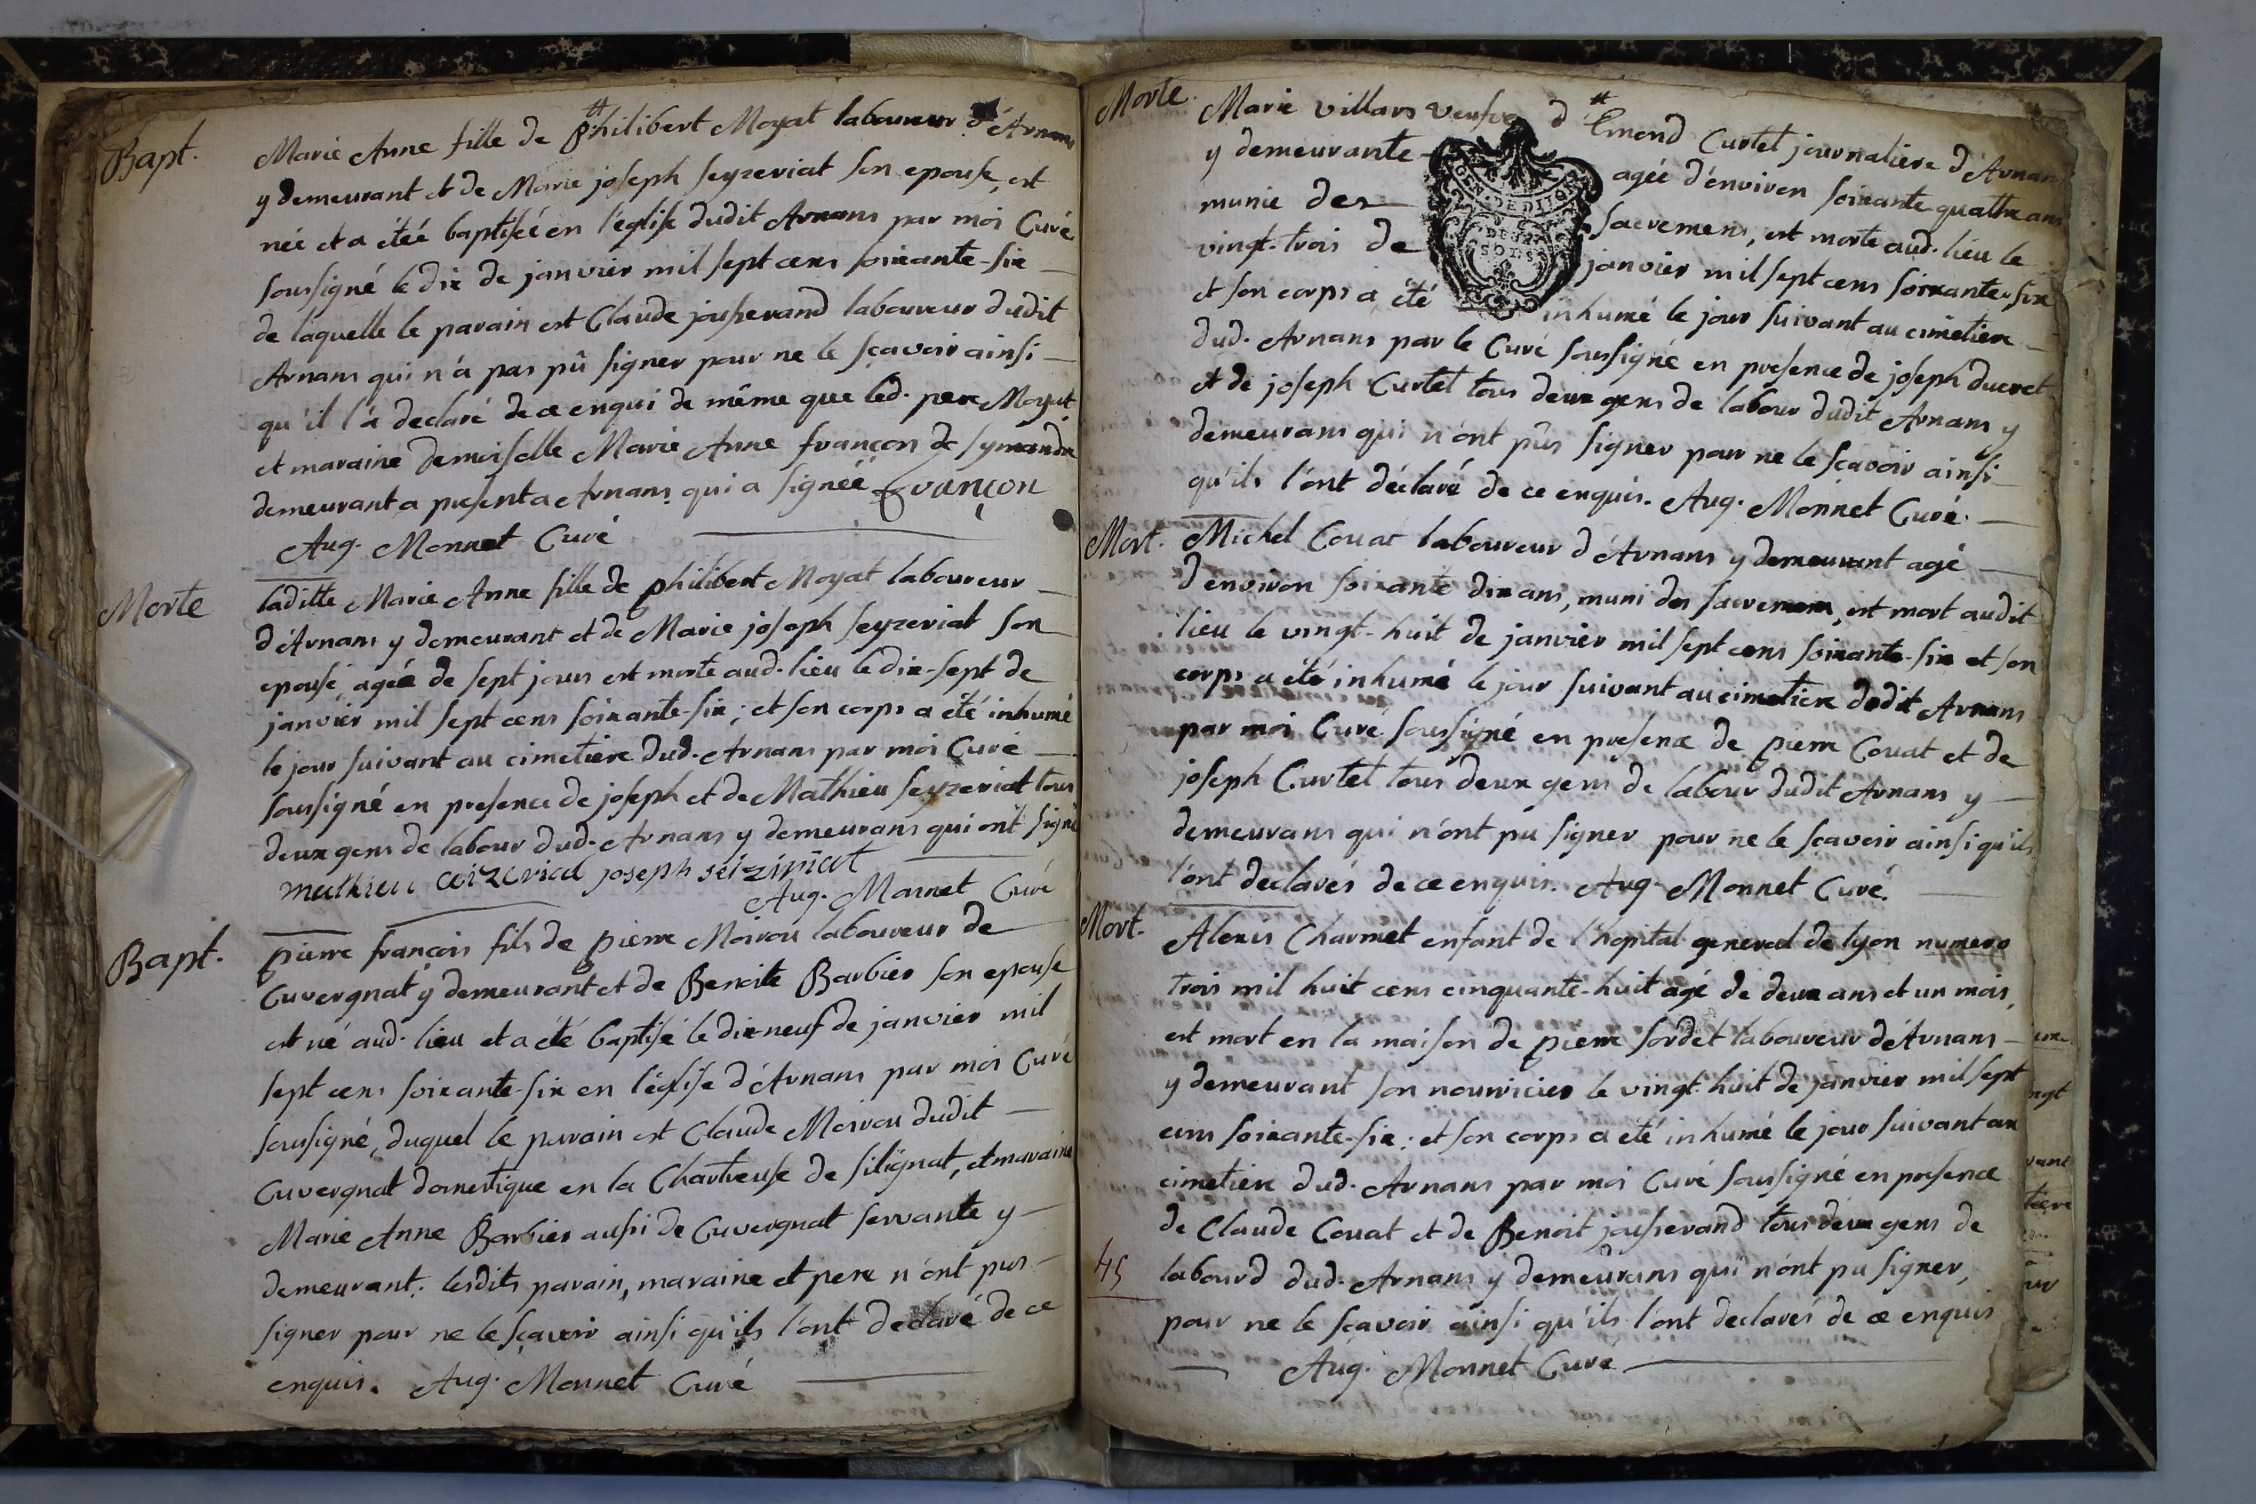 Bapt.
Marie Anne fille de philibert Moyat laboureur d'Arnans
y demeurant et de Marie joseph seyzeriat son epouse, est
née et a étée baptisée en l'église dudit Arnans par moi Curé
soussigné le dix de janvier mil sept cens soixante-six
de laquelle le parain est Claude jousserand laboureur dudit
Arnans qui n'a pas pû signer pour ne le sçavoir ainsi
qu'il l'a declaré de ce enqui de même que led. pere Moyat
et maraine demoiselle Marie Anne françon de symandre
demeurant a present a Arnans qui a signéé françon
Aug. Monnet Curé
Morte
laditte Marie Anne fille de philibert Moyat laboureur
d'Arnans y demeurant et de Marie joseph seyzeriat son
epouse, agée de sept jours est morte aud. lieu le dix-sept de
janvier mil sept cens soixante-six; et son corps a été inhumé
le jour suivant au cimetiere dud. Arnans par moi Curé
soussigné en presence de joseph et de Mathieu seyzeriat tous
deux gens de labour dud. Arnans y demeurans qui ont signé
mathieu ceizeriat joseph seizeriat
Aug. Monnet Curé
Bapt.
pierre françois fils de pierre Moirou laboureur de
Cuvergnat y demeurant et de Benoite Barbier son epouse
est né aud. lieu et a été baptisé le dixneuf de janvier mil
sept cens soixante-six en l'église d'Arnans par moi Curé
soussigné, duquel le parain est Claude Moirou dudit
Cuvergnat domestique en la Chartreuse de silignat, et maraine
Marie Anne Barbier aussi de Cuvergnat servante y
demeurant: lesdits parain, maraine et pere n'ont pus
signer pour ne le sçavoir ainsi qu'ils l'ont declaré de ce
enquis. Aug. Monnet Curé
Morte.
Marie villars veufve d'Emond Curtet journaliere d'Arnans
y demeurante agée d'environ soixante quattre ans
munie des sacremens, est morte aud. lieu le
vingt-trois de janvier mil sept cens soixante-six
et son corps a été inhumé le jour suivant au cimetiere
dud. Arnans par le Curé soussigné en presence de joseph ducret
et de joseph Curtet tous deux gens de labour dudit Arnans y
demeurans qui n'ont pûs signer pour ne le sçavoir ainsi
qu'ils l'ont déclaré de ce enquis. Aug. Monnet Curé.
GEN DE DIJON
DEUX
SOLS
Mort.
Michel Couat laboureur d'Arnans y demeurant agé
d'environ soixante dix ans, muni des sacremens, est mort audit
lieu le vingt-huit de janvier mil sept cens soixante-six et son
corps a été inhumé le jour suivant au cimetiere dudit Arnans
par moi Curé soussigné en presence de pierre Couat et de
joseph Curtet tous deux gens de labour dudit Arnans y
demeurans qui n'ont pu signer pour ne le sçavoir ainsi qu'ils
l'ont declarés de ce enquis. Aug. Monnet Curé.
Mort.
Alexis Charmet enfant de l'hopital general de lyon numero
trois mil huit cens cinquante-huit agé de deux ans et un mois,
est mort en la maison de pierre sordet laboureur d'Arnans
y demeurant son nourricier le vingt-huit de janvier mil sept
cens soixante-six: et son corps a été inhumé le jour suivant au
cimetiere dud. Arnans par moi Curé soussigné en presence
de Claude Couat et de Benoit jousserand tous deux gens de
labourd dud. Arnans y demeurans qui n'ont pu signer,
pour ne le sçavoir ainsi qu'ils l'ont declarés de ce enquis
Aug. Monnet Curé
45